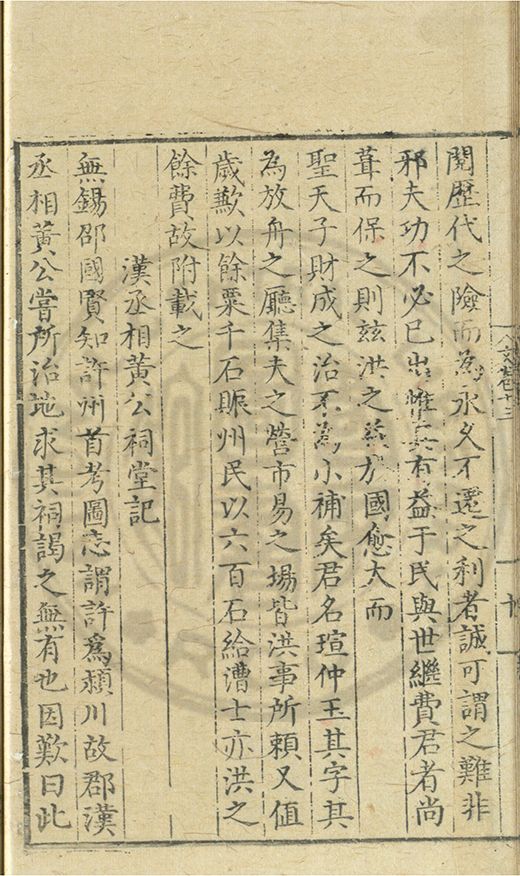 閱歷代之險而為永久不遷之利者誠可謂之難非
邪夫功不必已出惟其有益于民與世繼費君者尚
葺而保之則玆洪之方國愈大而
聖天子財成之治不為小補矣君名瑄仲玉其字其
為放舟之廳集夫之營市易之場皆洪事所賴又值
歲歉以餘粟千石賑州民以六百石給漕士亦洪之
餘費故附載之
漢丞相黃公祠堂記
無錫邵國賢知許州首考圖志謂許爲潁川故郡漢
丞相黃公嘗所治地求其祠謁之無有也因歎曰此